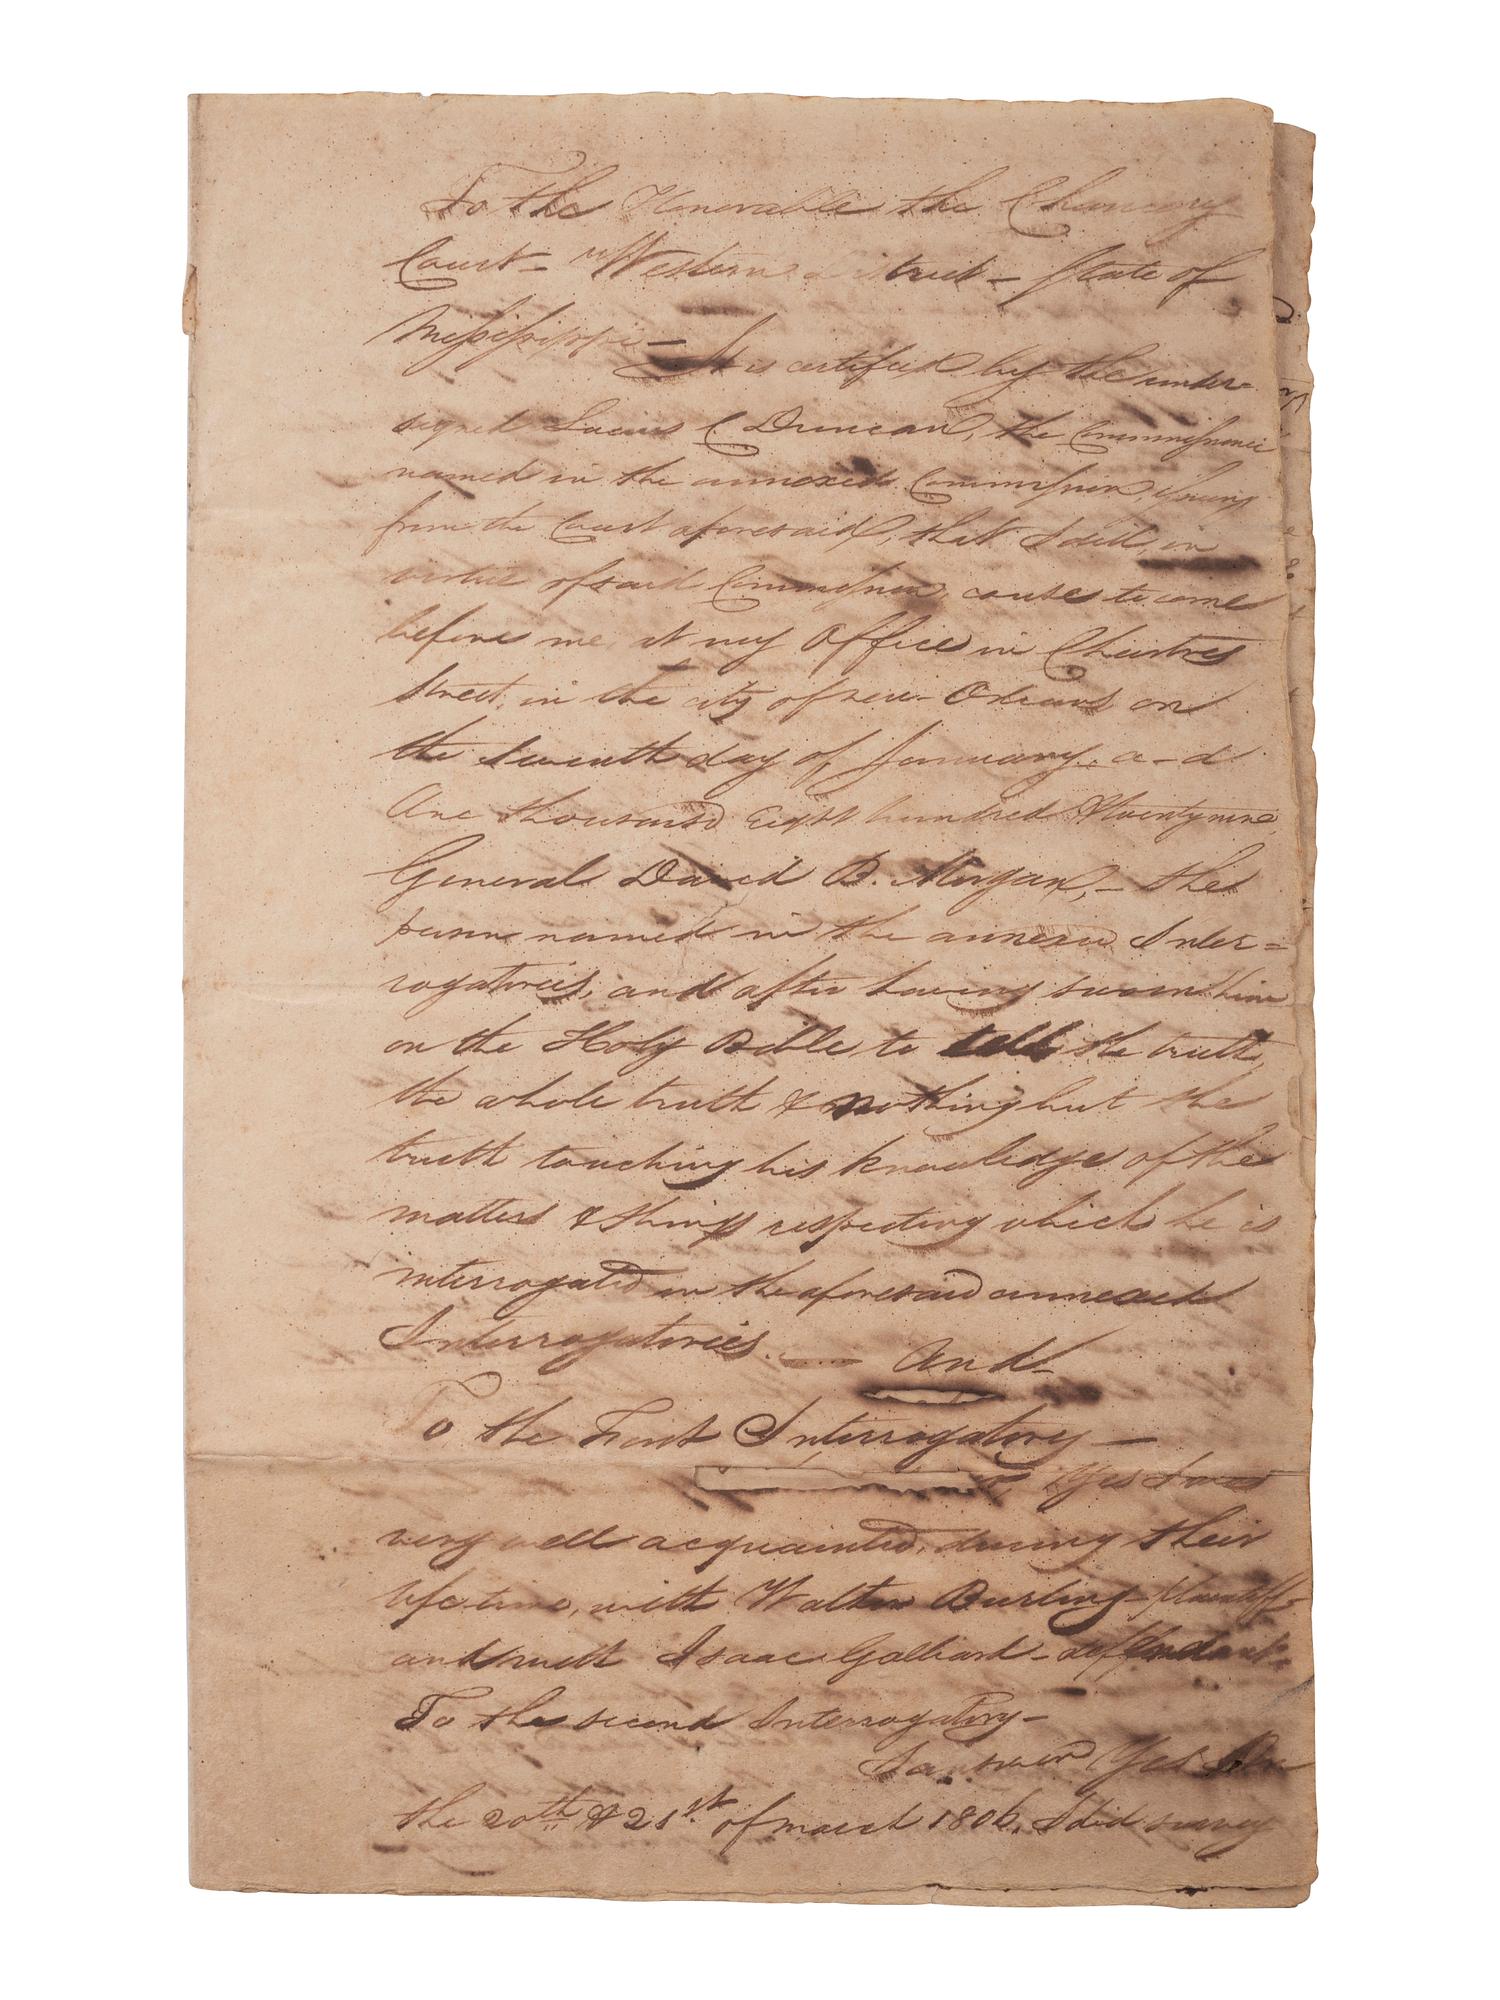 To the Honorable the Chancery
Court - Western District - State of
Mississippi -
It is certified by the under-
signed Lucius C Duncan, the Commissioner
named in the annexed Commission, issuing
from the Court aforesaid, that I did, in
virtue of said Commission, cause to come
before me, at my Office in Chartres
street, in the city of new-Orleans on
the Seventh day of January, a - d
One thousand Eight hundred & twenty nine,
General David B. Morgan, - the
person named in the annexed Inter=
rogatories; and after having sworn him
on the Holy Bible, to tell the truth,
the whole truth & nothing but the
truth touching his knowledge of the
matters & things respecting which he is
interrogated in the aforesaid annexed
Interrogatories. - And -
To the First Interrogatory -
Yes I was
very well acquainted, during their
lifetime, with Walter Burling - plaintiff -
and with Isaac Galliard - defendant.
To the second Interrogatory -
I answer Yes On
the 20th & 21st of march 1806, I did survey